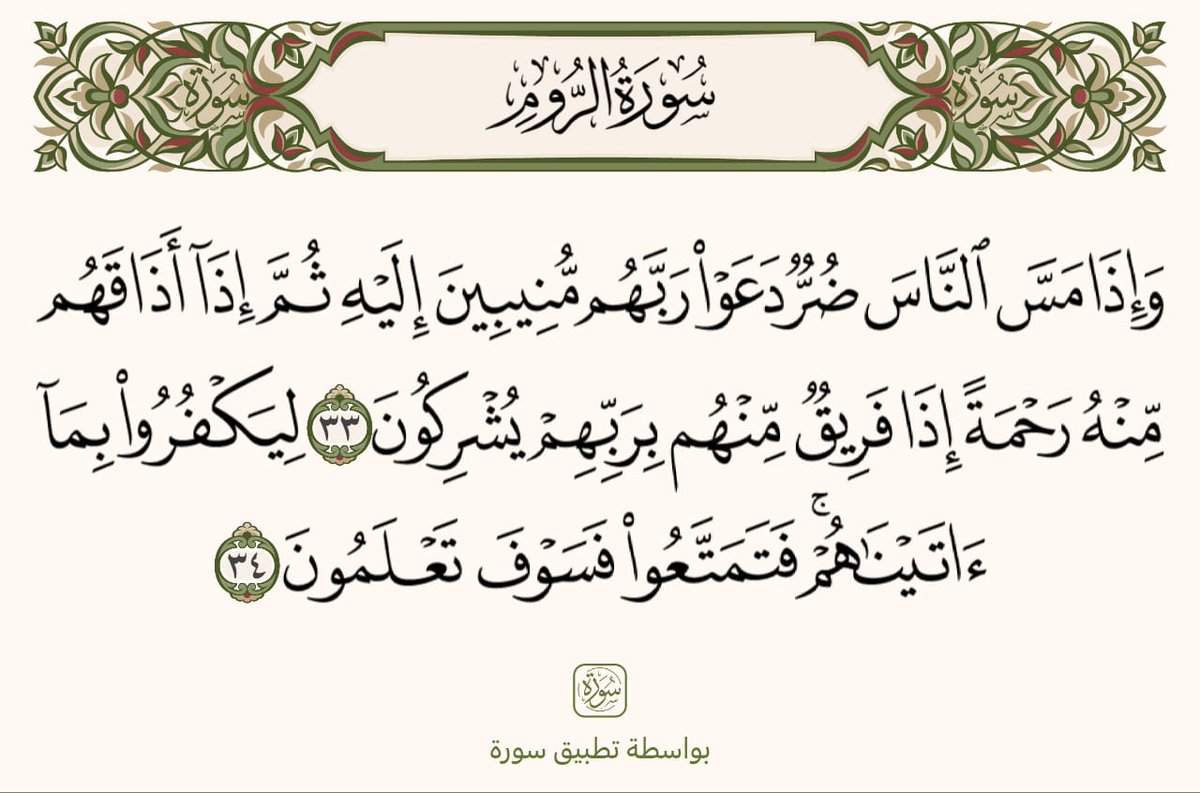 سُورَةُ الرُّومِ
وَإِذَا مَسَّ ٱلنَّاسَ ضُرٌّ دَعَوْا۟ رَبَّهُم مُّنِيبِينَ إِلَيْهِ ثُمَّ إِذَآ أَذَاقَهُم
مِّنْهُ رَحْمَةً إِذَا فَرِيقٌ مِّنْهُم بِرَبِّهِمْ يُشْرِكُونَ ٣٣ لِيَكْفُرُوا۟ بِمَآ
ءَاتَيْنَـٰهُمْ ۚ فَتَمَتَّعُوا۟ فَسَوْفَ تَعْلَمُونَ ٣٤
سُورَة
بواسطة تطبيق سورة